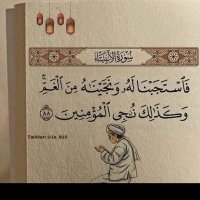 سُورَةُ الْأَنْبِيَاءِ
فَاسْتَجَبْنَا لَهُ وَنَجَّيْنَاهُ مِنَ الْغَمِّ ۚ
وَكَذَٰلِكَ نُنْجِي الْمُؤْمِنِينَ ٨٨